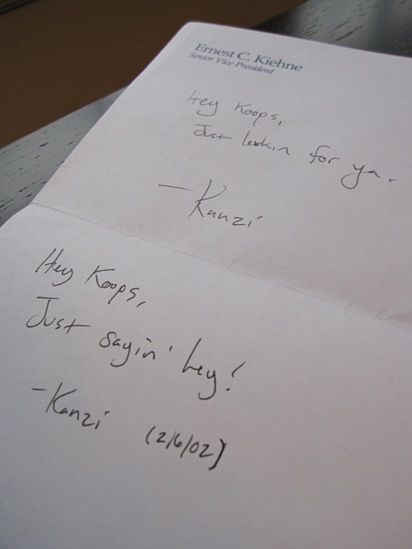 Ernest C. Kiehne
Senior Vice President
Hey Koops,
Just lookin for ya.
— Kanzi
Hey Koops,
Just sayin' hey!
- Kanzi (2/6/02)